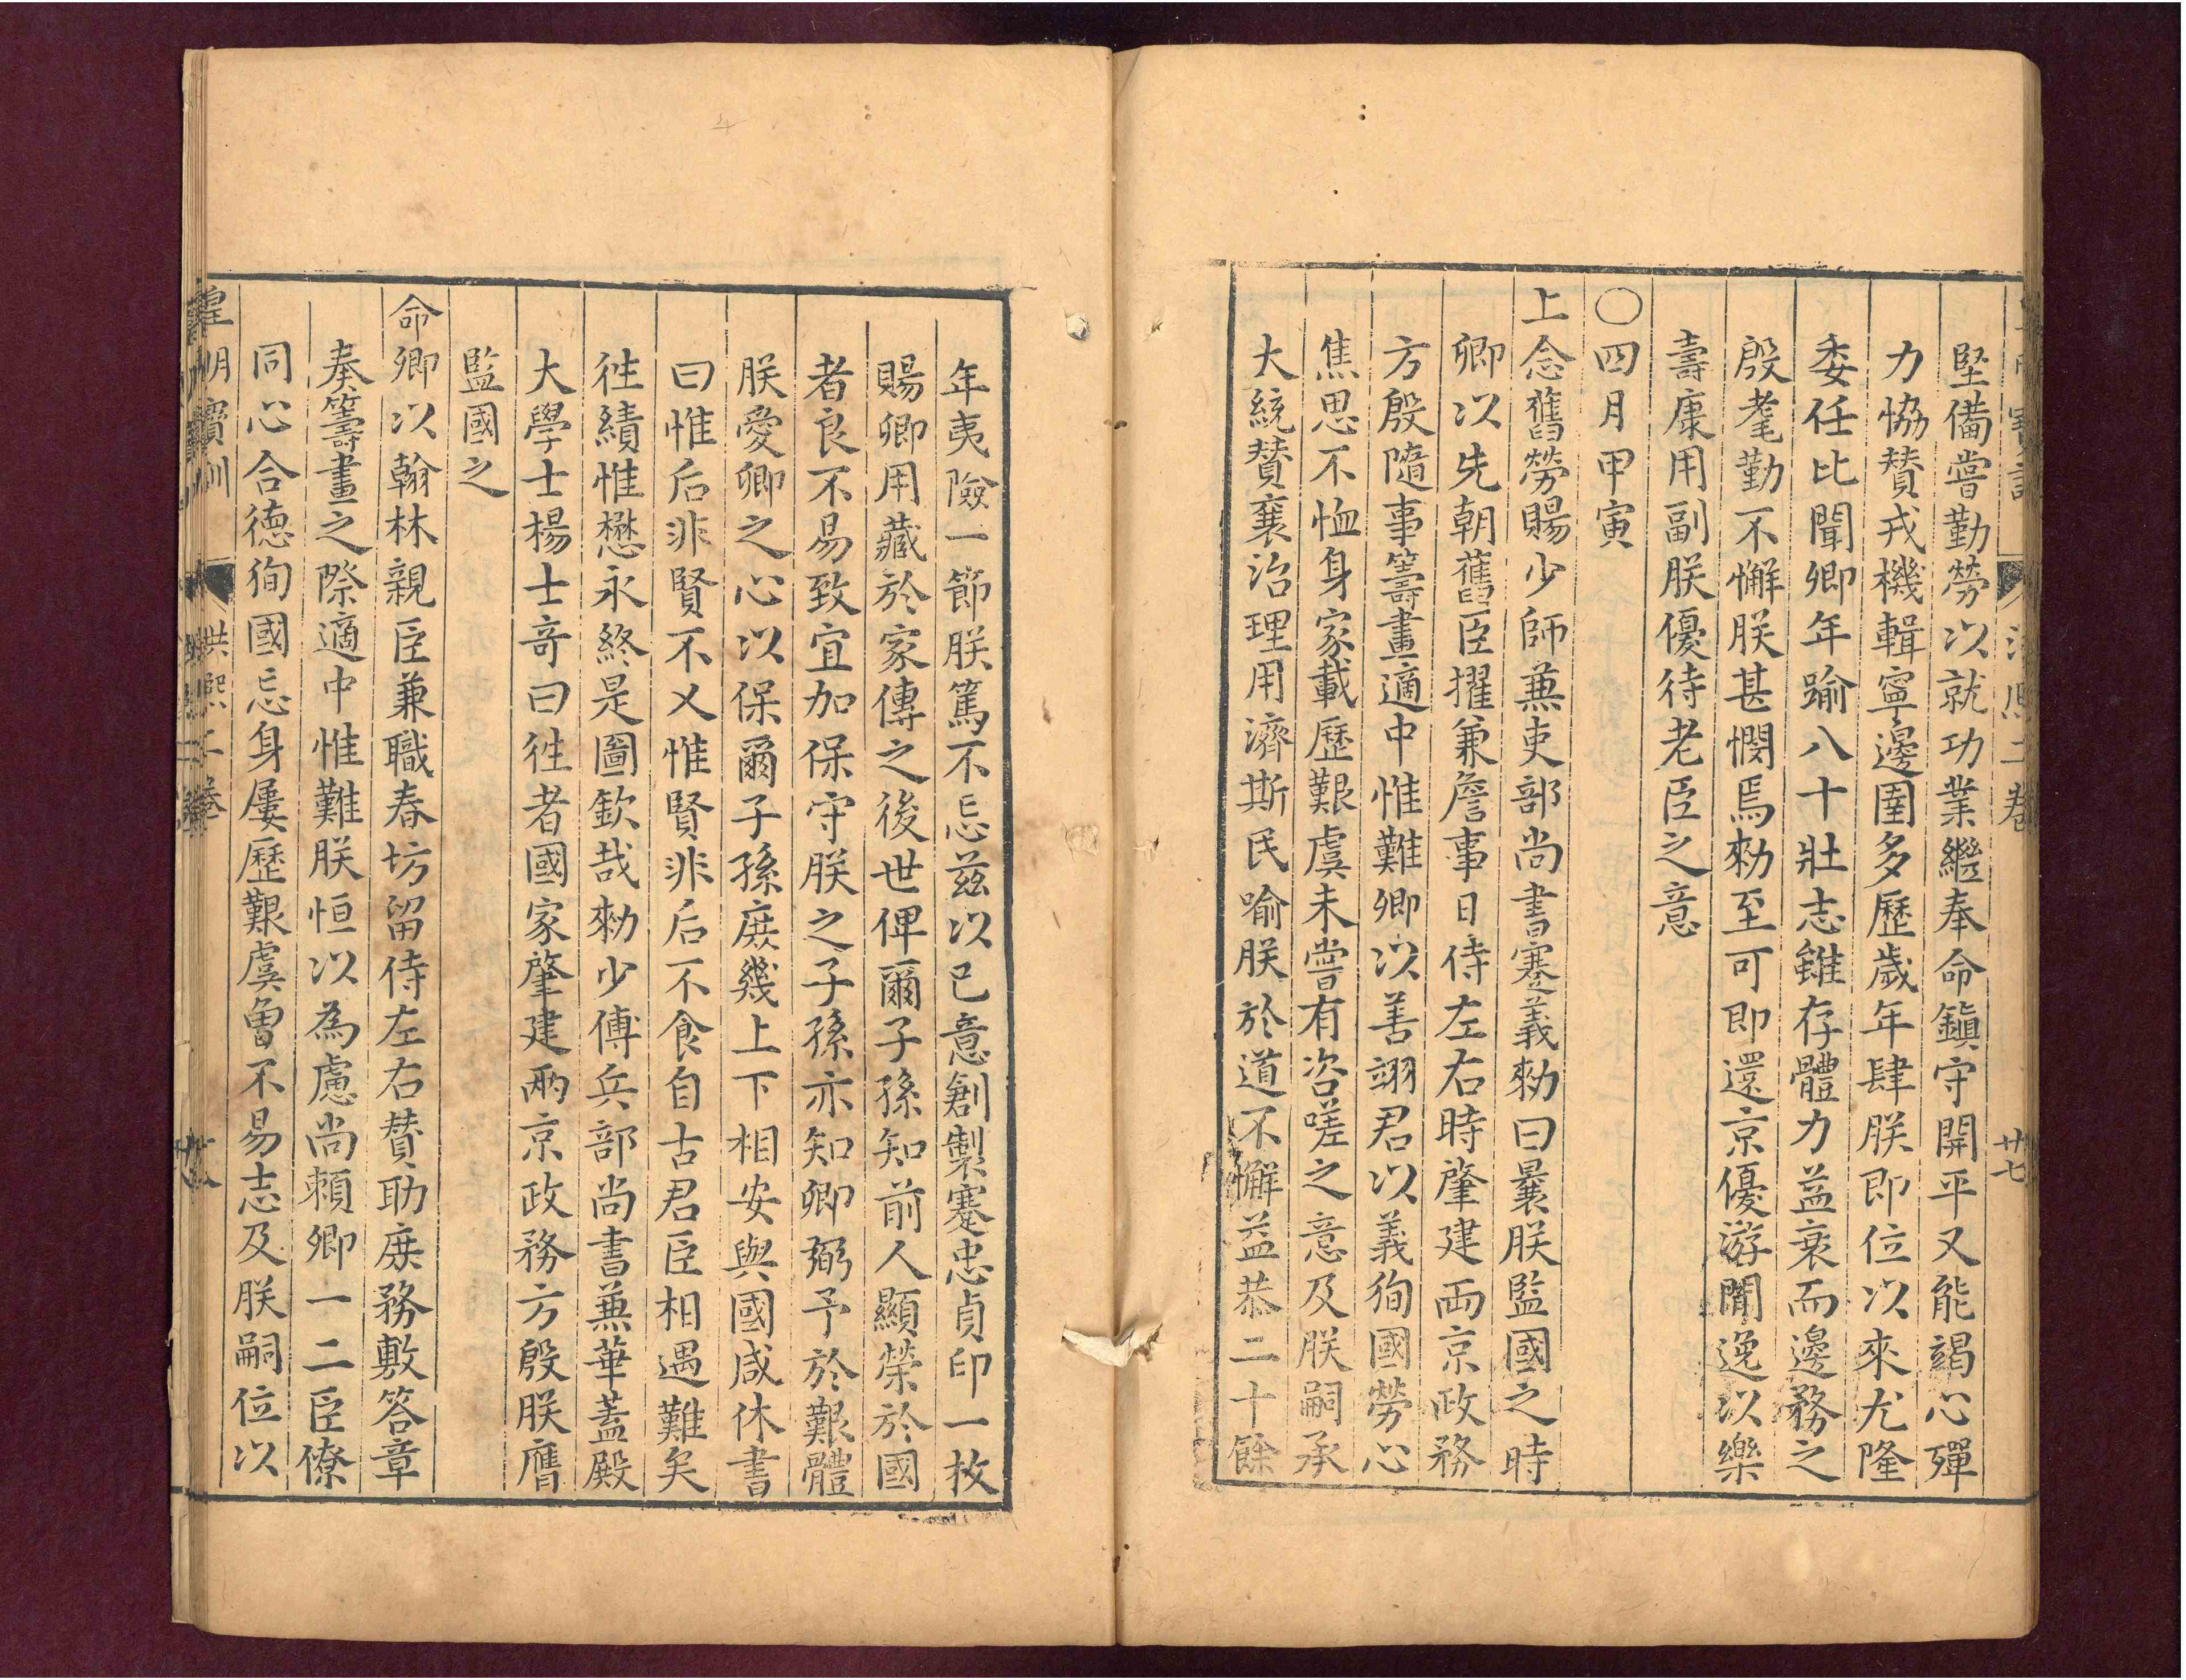 堅備嘗勤勞以就功業繼奉命鎮守開平又能竭心殫
力恊賛戎機輯寧邊圉多歷歲年肆朕即位以來尤隆
委任比聞卿年踰八十壯志雖存體力益衰而邊務之
殷耄勤不懈朕甚憫焉勑至可即還京優游閒逸以樂
壽康用副朕優待老臣之意
〇四月甲寅
上念舊勞賜少師兼吏部尚書蹇義勑曰曩朕監國之時
卿以先朝舊臣擢兼詹事日侍左右時肇建兩京政務
方殷隨事籌畫適中惟難卿以善翊君以義徇國勞心
焦思不恤身家載歷艱虞未嘗有咨嗟之意及朕嗣承
大統賛襄治理用濟斯民喻朕於道不懈益恭二十餘
年夷險一節朕篤不忘茲以己意創製蹇忠貞印一枚
賜卿用藏於家傳之後世俾爾子孫知前人顯榮於國
者良不易致宜加保守朕之子孫亦知卿弼予於艱體
朕愛卿之心以保爾子孫庶幾上下相安與國咸休書
曰惟后非賢不乂惟賢非后不食自古君臣相遇難矣
徃績惟懋永終是圖欽哉勑少傅兵部尚書兼華蓋殿
大學士楊士竒曰徃者國家肇建兩京政務方殷朕膺
監國之
命卿以翰林親臣兼職春坊留侍左右賛助庶務敷答章
奏籌畫之際適中惟難朕恒以為慮尚頼卿一二臣僚
同心合德徇國忘身屢歷艱虞曾不易志及朕嗣位以
皇明寶訓 洪熙二卷